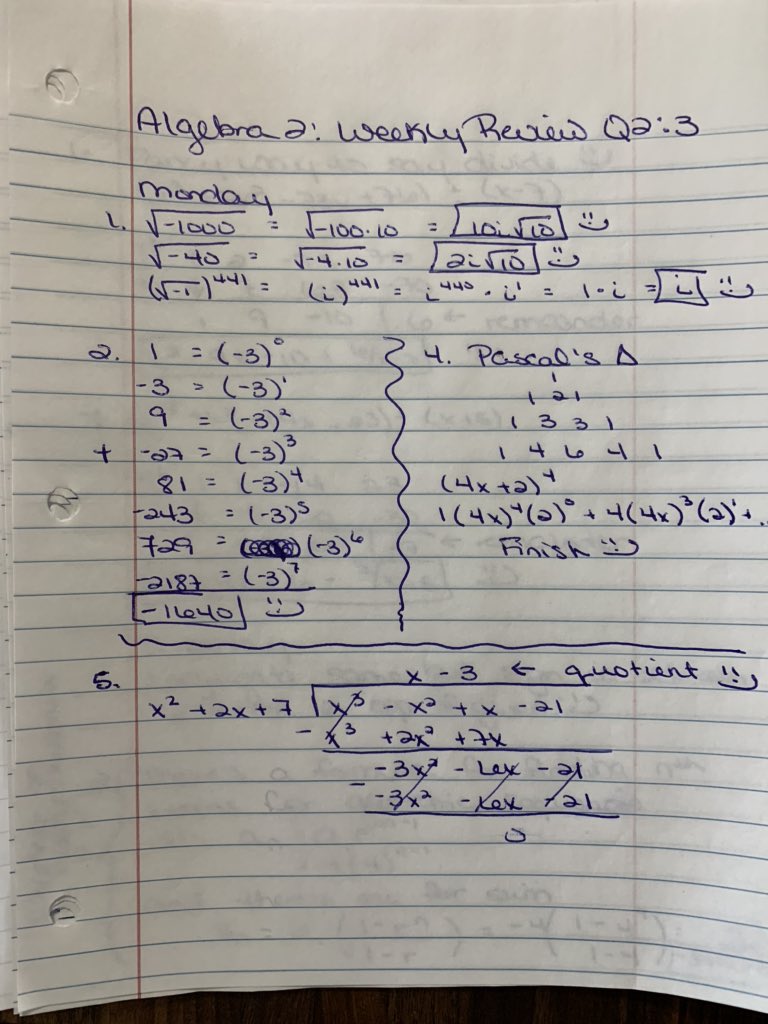 Algebra 2: Weekly Review Q2:3
Monday
1. √-1000 = √-100·10 = 10i√10
√-40 = √-4·10 = 2i√10
(√-1)⁴⁴¹ = (i)⁴⁴¹ = i⁴⁴⁰ · i¹ = 1·i = i
2. 1 = (-3)⁰
-3 = (-3)¹
9 = (-3)²
+ -27 = (-3)³
81 = (-3)⁴
-243 = (-3)⁵
729 = (-3)⁶
-2187 = (-3)⁷
-1640
4. Pascal's Δ
1
1 2 1
1 3 3 1
1 4 6 4 1
(4x+2)⁴
1(4x)⁴(2)⁰ + 4(4x)³(2)¹ + ..
Finish
5. x - 3 ← quotient
x² + 2x + 7 √x³ - x² + x - 21
- x³ + 2x² + 7x
-3x² - 6x - 21
- -3x² - 6x - 21
0